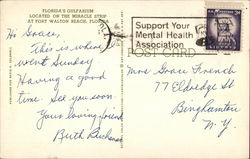 FLORIDA'S GULFARIUM
LOCATED ON THE MIRACLE STRIP
AT FORT WALTON BEACH, FLORIDA
Support Your
Mental Health
Association
POST CARD
Hi Grace,
This is where we
went Sunday
Having a good
time. See you soon
Your loving friend
Ruth
Mrs Grace French
77 Eldredge St
Binghamton
N.Y.